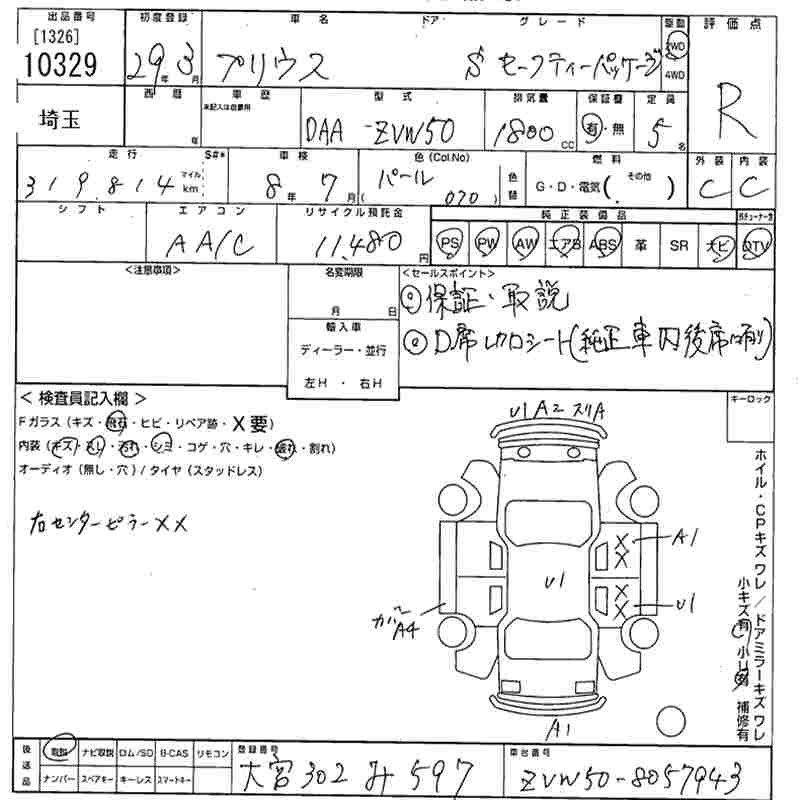 出品番号 初度登録 車名 ドア グレード 駆動 評価点
[1326]
10329 29年 3月 プリウス S セーフティーパッケージ 2WD 4WD R
埼玉 西暦 車歴 型式 排気量 保証書 定員
年 未記入は自家用 DAA-ZVW50 1800 CC 有・無 5名
走行 S#* 車検 色(Col.No) 燃料 外装 内装
319,814 マイル km 8年 7月 パール (070) 色替 G・D・電気(その他) C C
シフト エアコン リサイクル預託金 純正装備品 地デジチューナー含
AA/C 11,480円 PS PW AW エアB ABS 革 SR ナビ DTV
<注意事項> 名変期限 <セールスポイント>
月 日 ◎保証・取説
輸入車 ◎D席レカロシート(純正車内後席に有り)
ディーラー・並行
左H ・ 右H
<検査員記入欄> キーロック
Fガラス(キズ・飛石・ヒビ・リペア跡・X要)
内装(キズ・スレ・汚れ・シミ・コゲ・穴・キレ・破れ・割れ)
オーディオ(無し・穴)/タイヤ(スタッドレス)
右センターピラーXX
U1 A2 スリA
X X A1
U1
X X U1
ガリ A4
A1
ホイル・CPキズ ワレ/ドアミラーキズ ワレ
小キズ有 小U有 補修有
後送品 取説 ナビ取説 ロム/SD B-CAS リモコン 登録番号 車台番号
ナンバー スペアキー キーレス スマートキー 大宮302 み 597 ZVW50-8057943